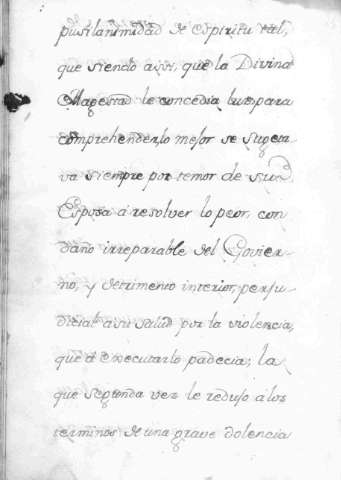 pusilanimidad de espiritu tal,
que siendo assi, que la Divina
Magestad le concedia luz para
comprehender lo mejor se sugeta
va siempre por temor de su
Esposa á resolver lo peor, con
daño irreparable del Govier
no, y detrimento interior, perju
dicial á su salud por la violencia,
que á executarlo padecia; la
que segunda vez le redujo á los
terminos de una grave dolencia